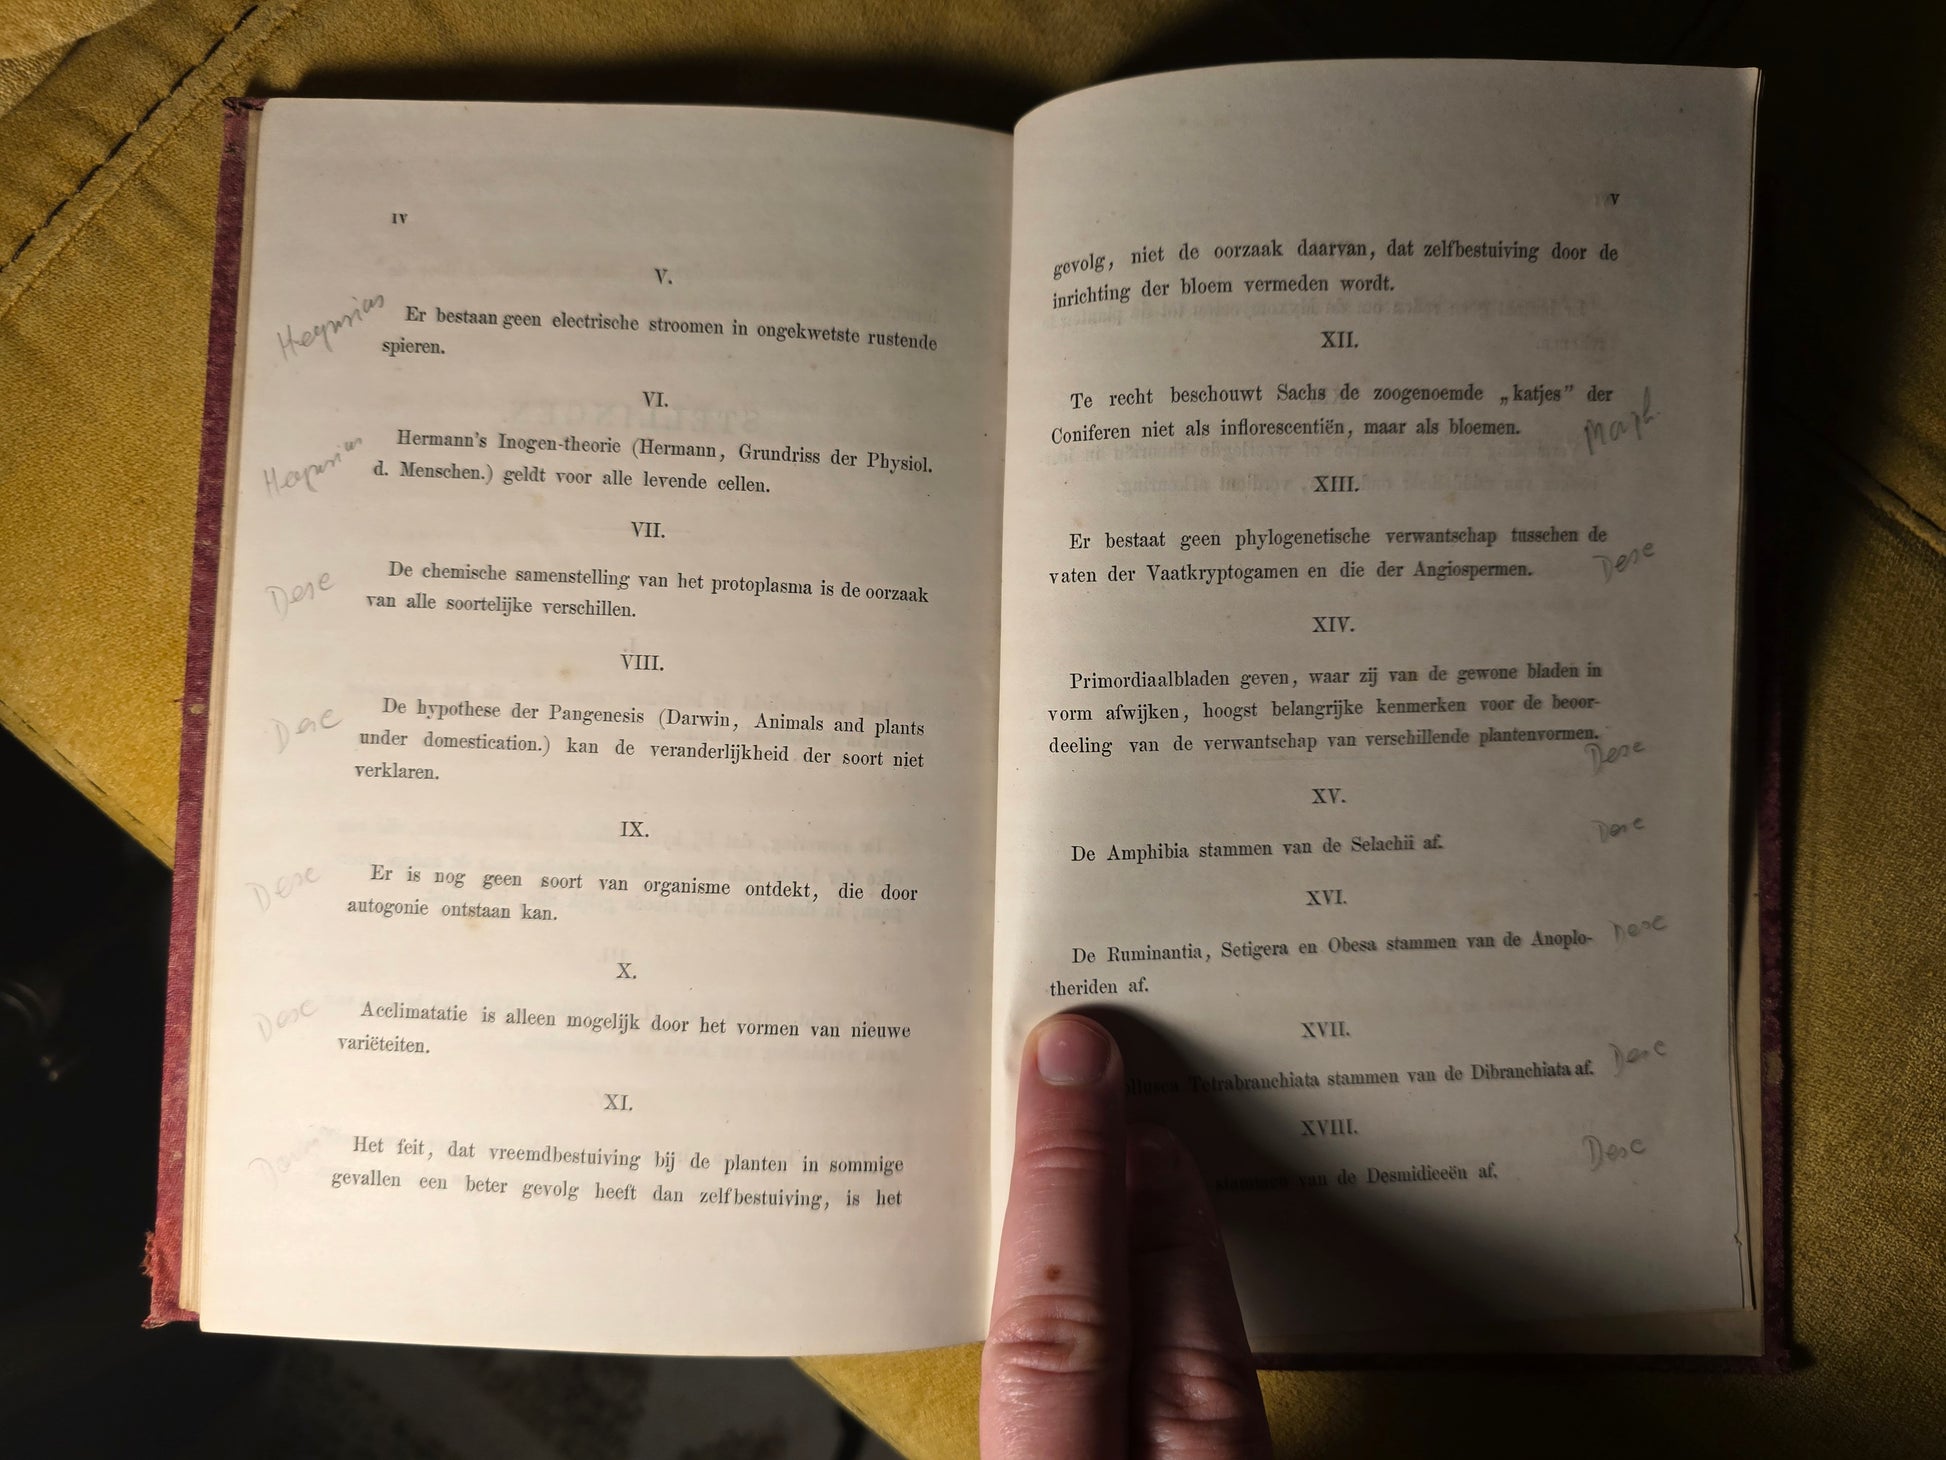 IV
V.
Er bestaan geen electrische stroomen in ongekwetste rustende
spieren.
VI.
Hermann's Inogen-theorie (Hermann, Grundriss der Physiol.
d. Menschen.) geldt voor alle levende cellen.
VII.
Dese
De chemische samenstelling van het protoplasma is de oorzaak
van alle soortelijke verschillen.
VIII.
Dese
De hypothese der Pangenesis (Darwin, Animals and plants
under domestication.) kan de veranderlijkheid der soort niet
verklaren.
IX.
Dese
Er is nog geen soort van organisme ontdekt, die door
autogonie ontstaan kan.
X.
Dese
Acclimatatie is alleen mogelijk door het vormen van nieuwe
variëteiten.
XI.
Het feit, dat vreemdbestuiving bij de planten in sommige
gevallen een beter gevolg heeft dan zelfbestuiving, is het
V
gevolg, niet de oorzaak daarvan, dat zelfbestuiving door de
inrichting der bloem vermeden wordt.
XII.
Te recht beschouwt Sachs de zoogenoemde „katjes” der
Coniferen niet als inflorescentiën, maar als bloemen.
Morph.
XIII.
Er bestaat geen phylogenetische verwantschap tusschen de
vaten der Vaatkryptogamen en die der Angiospermen.
Dese
XIV.
Primordiaalbladen geven, waar zij van de gewone bladen in
vorm afwijken, hoogst belangrijke kenmerken voor de beoor-
deeling van de verwantschap van verschillende plantenvormen.
Dese
XV.
De Amphibia stammen van de Selachii af.
Dese
XVI.
De Ruminantia, Setigera en Obesa stammen van de Anoplo-
theriden af.
Dese
XVII.
Tetrabranchiata stammen van de Dibranchiata af.
Dese
XVIII.
stammen van de Desmidieeën af.
Dese